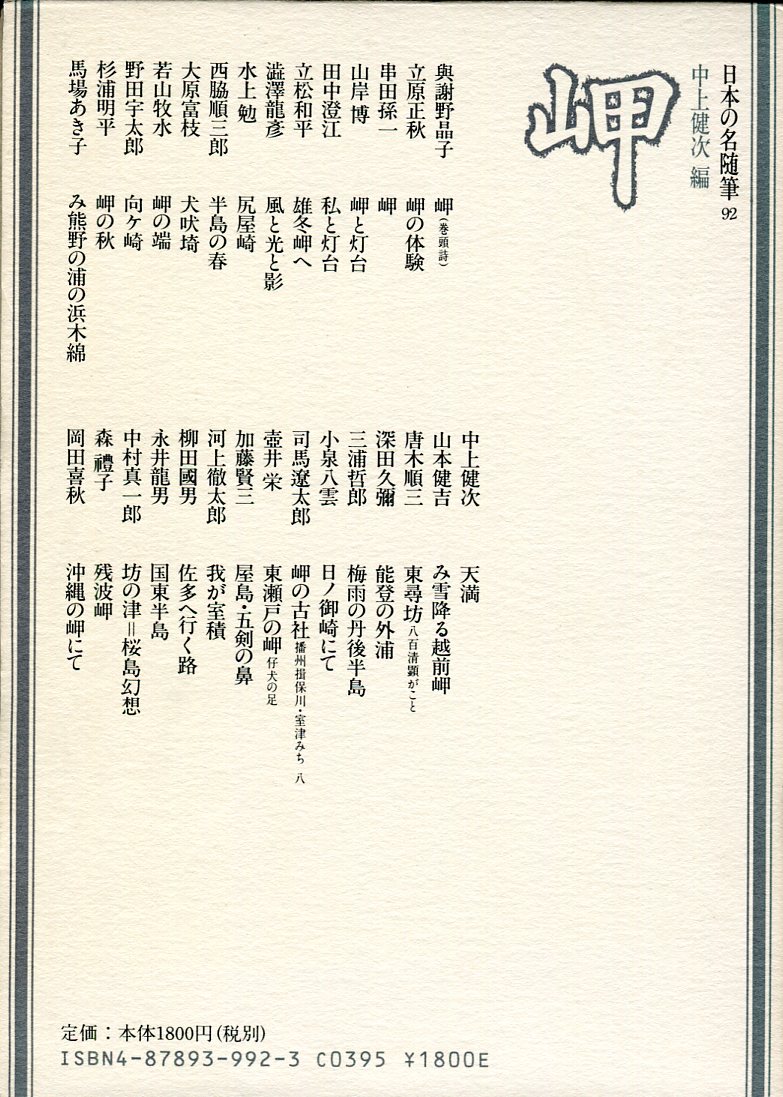 日本の名随筆 92
中上健次 編
岬
與謝野晶子 岬(巻頭詩)
立原正秋 岬の体験
串田孫一 岬
山岸 博 岬と灯台
田中澄江 私と灯台
立松和平 雄冬岬へ
澁澤龍彥 風と光と影
水上 勉 尻屋崎
西脇順三郎 半島の春
大原富枝 犬吠埼
若山牧水 岬の端
野田宇太郎 向ケ崎
杉浦明平 岬の秋
馬場あき子 み熊野の浦の浜木綿
中上健次 天満
山本健吉 み雪降る越前岬
唐木順三 東尋坊 八百清顕がこと
深田久彌 能登の外浦
三浦哲郎 梅雨の丹後半島
小泉八雲 日ノ御崎にて
司馬遼太郎 岬の古社 播州揖保川・室津みち 八
壺井 栄 東瀬戸の岬 仔犬の足
加藤賢三 屋島・五剣の鼻
河上徹太郎 我が室積
柳田國男 佐多へ行く路
永井龍男 国東半島
中村真一郎 坊の津=桜島幻想
森 禮子 残波岬
岡田喜秋 沖縄の岬にて
定価:本体1800円(税別)
ISBN4-87893-992-3 C0395 ¥1800E